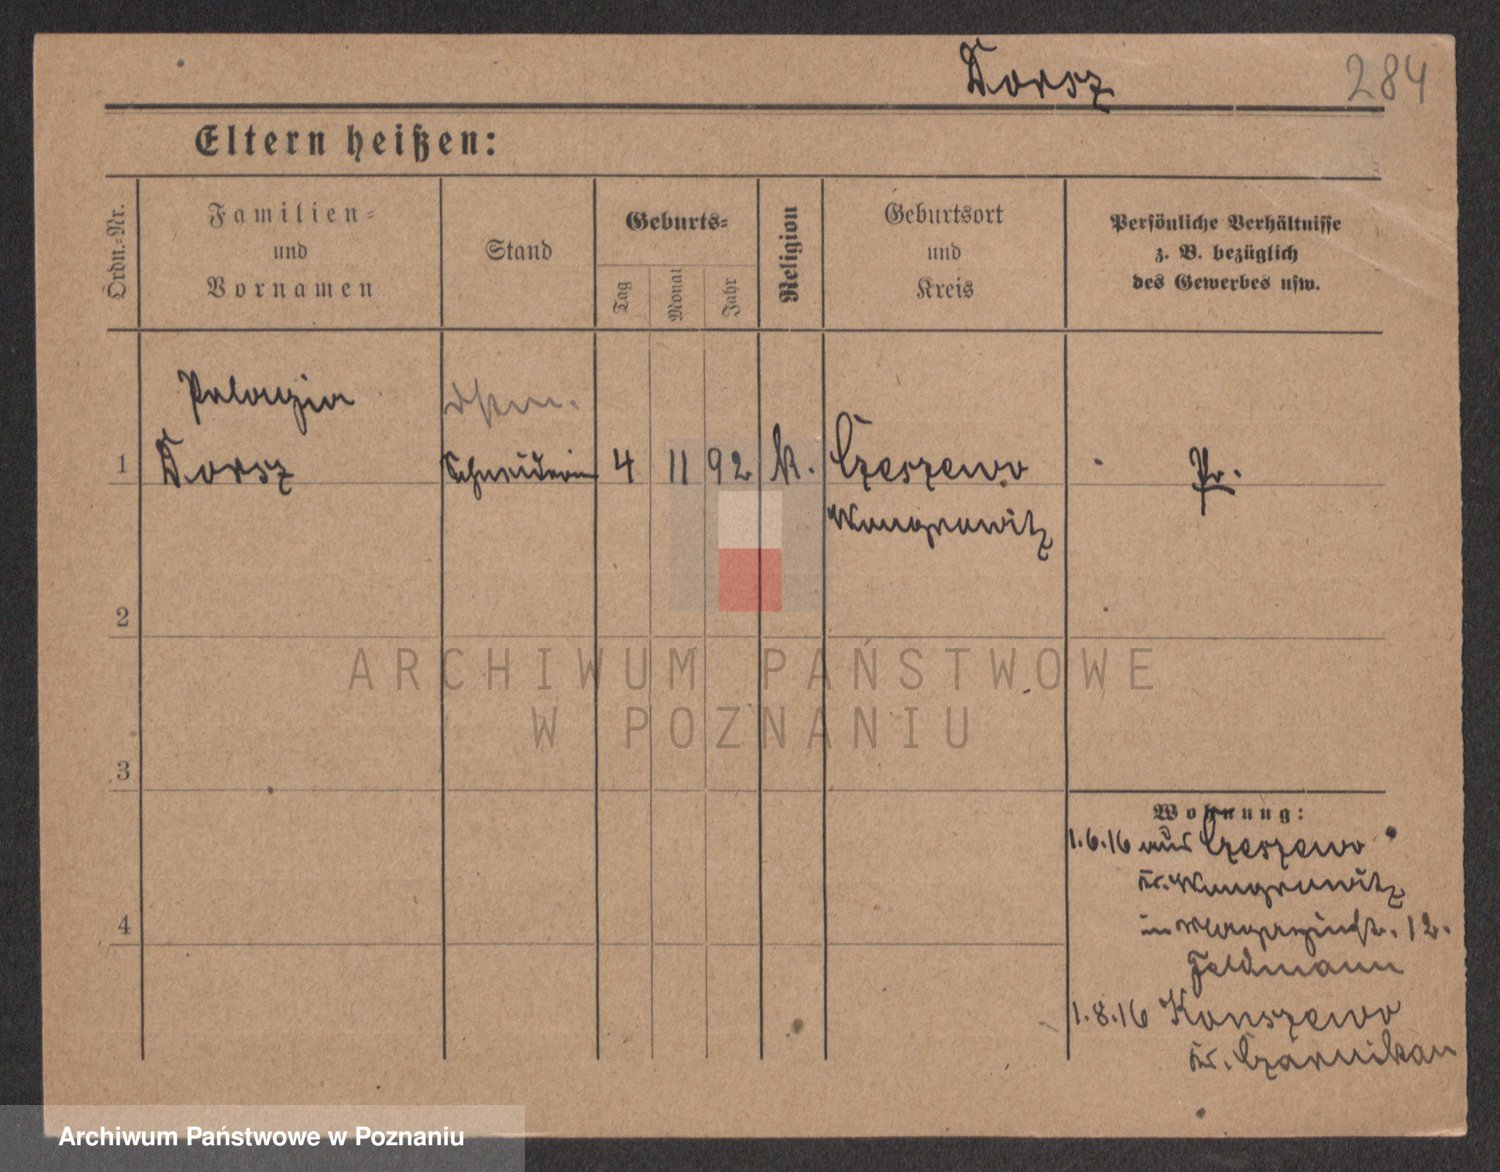 Dorsz 284
Eltern heißen:
Ordn.=Nr.
Familien=
und
Vornamen
Stand
Geburts=
Tag
Monat
Jahr
Religion
Geburtsort
und
Kreis
Persönliche Verhältnisse
z. B. bezüglich
des Gewerbes usw.
Pelagia
1 Dorsz Schneiderin 4 11 92 k. Czeszewo Pr.
Wongrowitz
2
3
4
Wohnung:
1.6.16 aus Czeszewo
Kr. Wongrowitz
in Magazinstr. 12.
Feldmann
1.8.16
Kr. Czarnikau
ARCHIWUM PAŃSTWOWE
W POZNANIU
Archiwum Państwowe w Poznaniu